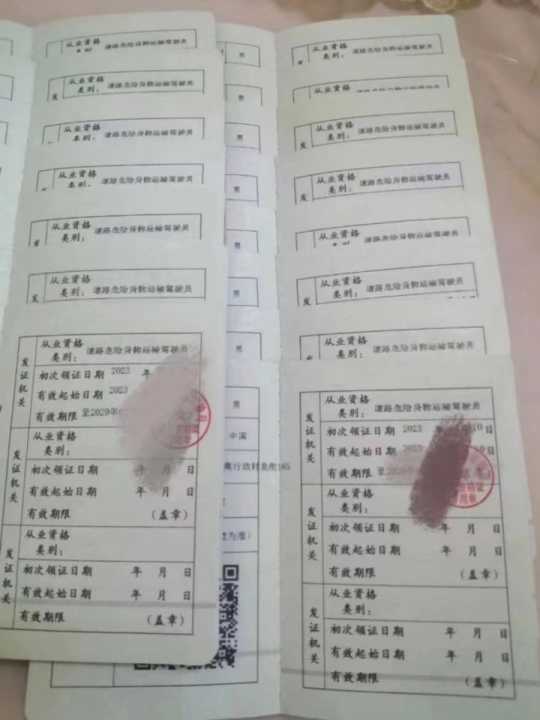 从业资格
道路危险货物运输驾驶员
从业资格
类别： 道路危险货物运输驾驶员
从业资格
类别： 道路危险货物运输驾驶员
从业资格
道路危险货物运输驾驶员
从业资格
类别： 道路危险货物运输驾驶员
从业资格
类别： 道路危险货物运输驾驶员
发证机关
从业资格
类别： 道路危险货物运输驾驶员
初次领证日期 2023 年
有效起始日期 2023
有效期限 至2029年
发证机关
从业资格
类别：
初次领证日期 年 月 日
有效起始日期 年 月 日
有效期限 （盖章）
发证机关
从业资格
类别：
初次领证日期 年 月 日
有效起始日期 年 月 日
有效期限 （盖章）
男
男
男
男
男
男
男
男
中满
165
为准）
从业资格
类别： 道路危险货物运输驾驶员
从业资格
从业资格
类别： 道路危险货物运输驾驶员
从业资格
类别： 道路危险货物运输驾驶员
从业资格
类别： 道路危险货物运输驾驶员
从业资格
类别： 道路危险货物运输驾驶员
从业资格
类别： 道路危险货物运输驾驶员
发证机关
从业资格
类别： 道路危险货物运输驾驶员
初次领证日期 2023 日
有效起始日期 2023
有效期限 至2029
发证机关
从业资格
类别：
初次领证日期 年 月 日
有效起始日期 年 月 日
有效期限 （盖章）
发证机关
从业资格
类别：
初次领证日期 年 月 日
有效起始日期 年 月 日
有效期限 （盖章）